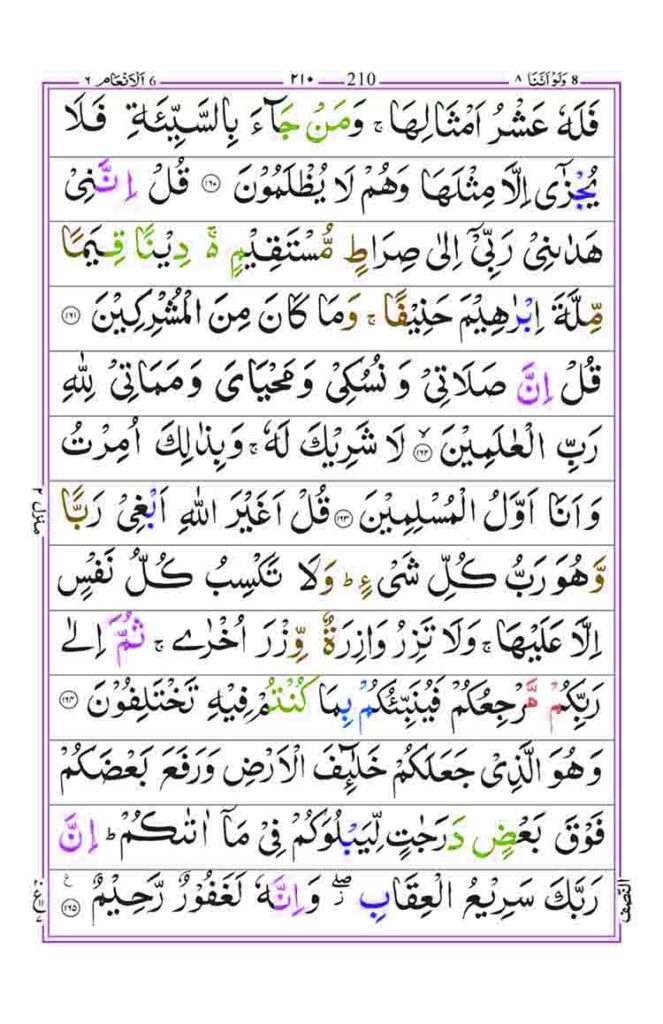 8 وَلَوْ اَنَّنَا ٨ 210 ٢١٠ 6 اَلْاَنْعَام ٦
فَلَهٗ عَشْرُ اَمْثَالِهَا ۚ وَمَنْ جَآءَ بِالسَّيِّئَةِ فَلَا
يُجْزٰٓى اِلَّا مِثْلَهَا وَهُمْ لَا يُظْلَمُوْنَ ﴿١٦٠﴾ قُلْ اِنَّنِيْ
هَدٰىنِيْ رَبِّيْٓ اِلٰى صِرَاطٍ مُّسْتَقِيْمٍ ۚ دِيْنًا قِيَمًا
مِّلَّةَ اِبْرٰهِيْمَ حَنِيْفًا ۚ وَمَا كَانَ مِنَ الْمُشْرِكِيْنَ ﴿١٦١﴾
قُلْ اِنَّ صَلَاتِيْ وَ نُسُكِيْ وَ مَحْيَايَ وَ مَمَاتِيْ لِلّٰهِ
رَبِّ الْعٰلَمِيْنَ ﴿١٦٢﴾ لَا شَرِيْكَ لَهٗ ۚ وَبِذٰلِكَ اُمِرْتُ
وَ اَنَا اَوَّلُ الْمُسْلِمِيْنَ ﴿١٦٣﴾ قُلْ اَغَيْرَ اللّٰهِ اَبْغِيْ رَبًّا
وَّ هُوَ رَبُّ كُلِّ شَيْءٍ ؕ وَلَا تَكْسِبُ كُلُّ نَفْسٍ
اِلَّا عَلَيْهَا ۚ وَلَا تَزِرُ وَازِرَةٌ وِّزْرَ اُخْرٰى ۚ ثُمَّ اِلٰى
رَبِّكُمْ مَّرْجِعُكُمْ فَيُنَبِّئُكُمْ بِمَا كُنْتُمْ فِيْهِ تَخْتَلِفُوْنَ ﴿١٦٤﴾
وَ هُوَ الَّذِيْ جَعَلَكُمْ خَلٰٓئِفَ الْاَرْضِ وَرَفَعَ بَعْضَكُمْ
فَوْقَ بَعْضٍ دَرَجٰتٍ لِّيَبْلُوَكُمْ فِيْ مَآ اٰتٰىكُمْ ؕ اِنَّ
رَبَّكَ سَرِيْعُ الْعِقَابِ ۖ وَ اِنَّهٗ لَغَفُوْرٌ رَّحِيْمٌ ﴿١٦٥﴾
منزل ٢
النصف